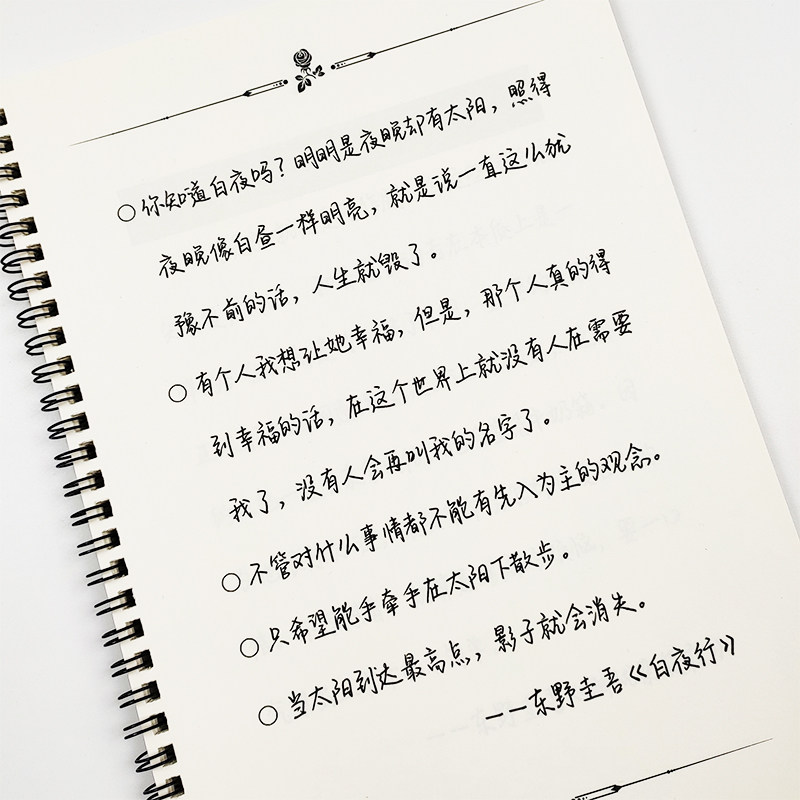 你知道白夜吗？明明是夜晚却有太阳，照得
夜晚像白昼一样明亮，就是说一直这么犹
豫不前的话，人生就毁了。
有个人我想让她幸福，但是，那个人真的得
到幸福的话，在这个世界上就没有人在需要
我了，没有人会再叫我的名字了。
不管对什么事情都不能有先入为主的观念。
只希望能手牵手在太阳下散步。
当太阳到达最高点，影子就会消失。
——东野圭吾《白夜行》